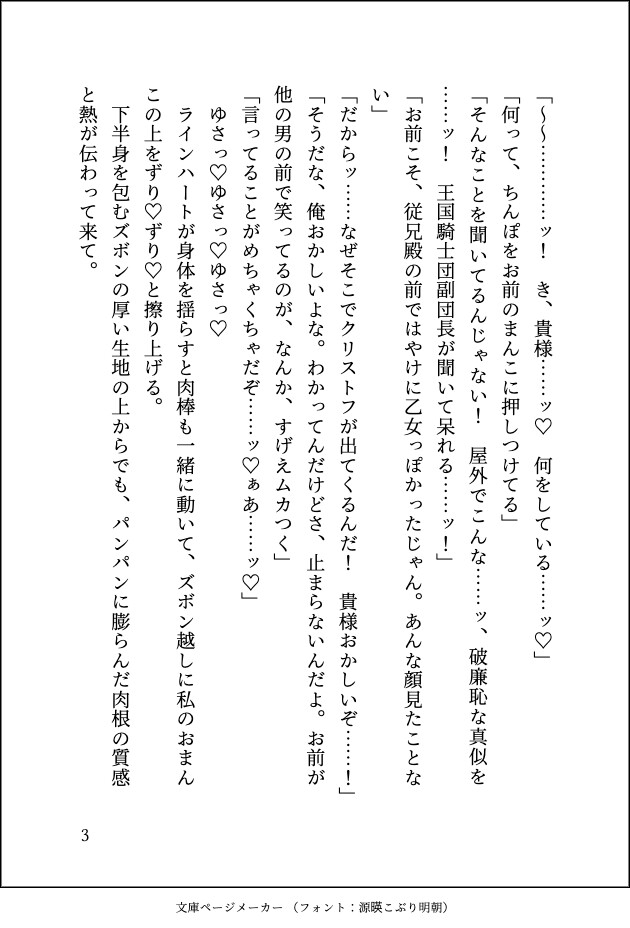 「～～…………ッ！　き、貴様……ッ♡　何をしている……ッ♡」
「何って、ちんぽをお前のまんこに押しつけてる」
「そんなことを聞いてるんじゃない！　屋外でこんな……ッ、破廉恥な真似を
……ッ！　王国騎士団副団長が聞いて呆れる……ッ！」
「お前こそ、従兄殿の前ではやけに乙女っぽかったじゃん。あんな顔見たことな
い」
「だからッ……なぜそこでクリストフが出てくるんだ！　貴様おかしいぞ……！」
「そうだな、俺おかしいよな。わかってんだけどさ、止まらないんだよ。お前が
他の男の前で笑ってるのが、なんか、すげえムカつく」
「言ってることがめちゃくちゃだぞ……ッ♡ぁあ……ッ♡」
　ゆさっ♡ゆさっ♡ゆさっ♡
　ラインハートが身体を揺らすと肉棒も一緒に動いて、ズボン越しに私のおまん
この上をずり♡ずり♡と擦り上げる。
　下半身を包むズボンの厚い生地の上からでも、パンパンに膨らんだ肉根の質感
と熱が伝わって来て。
3
文庫ページメーカー（フォント：源暎こぶり明朝）